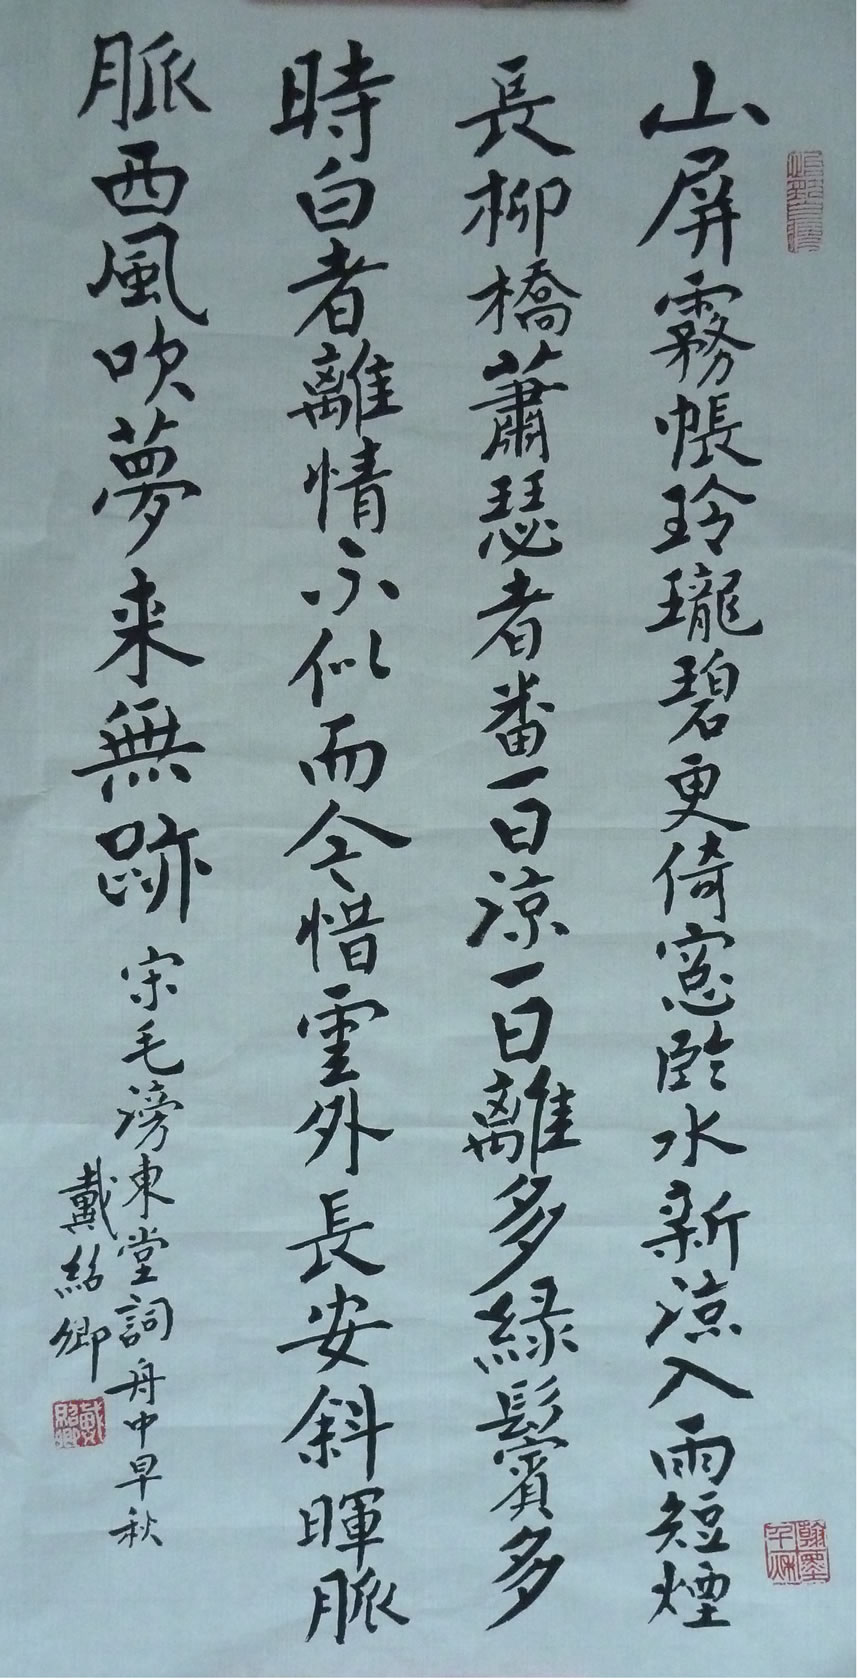 山屏霧帳玲瓏碧更倚窻臨水新涼入雨短煙
長柳橋蕭瑟者番一日涼一日離多綠鬢多
時白者離情不似而今惜雲外長安斜暉脈
脈西風吹夢来無跡
宋毛滂東堂詞舟中早秋
戴紹卿
戴紹卿
翰墨千秋